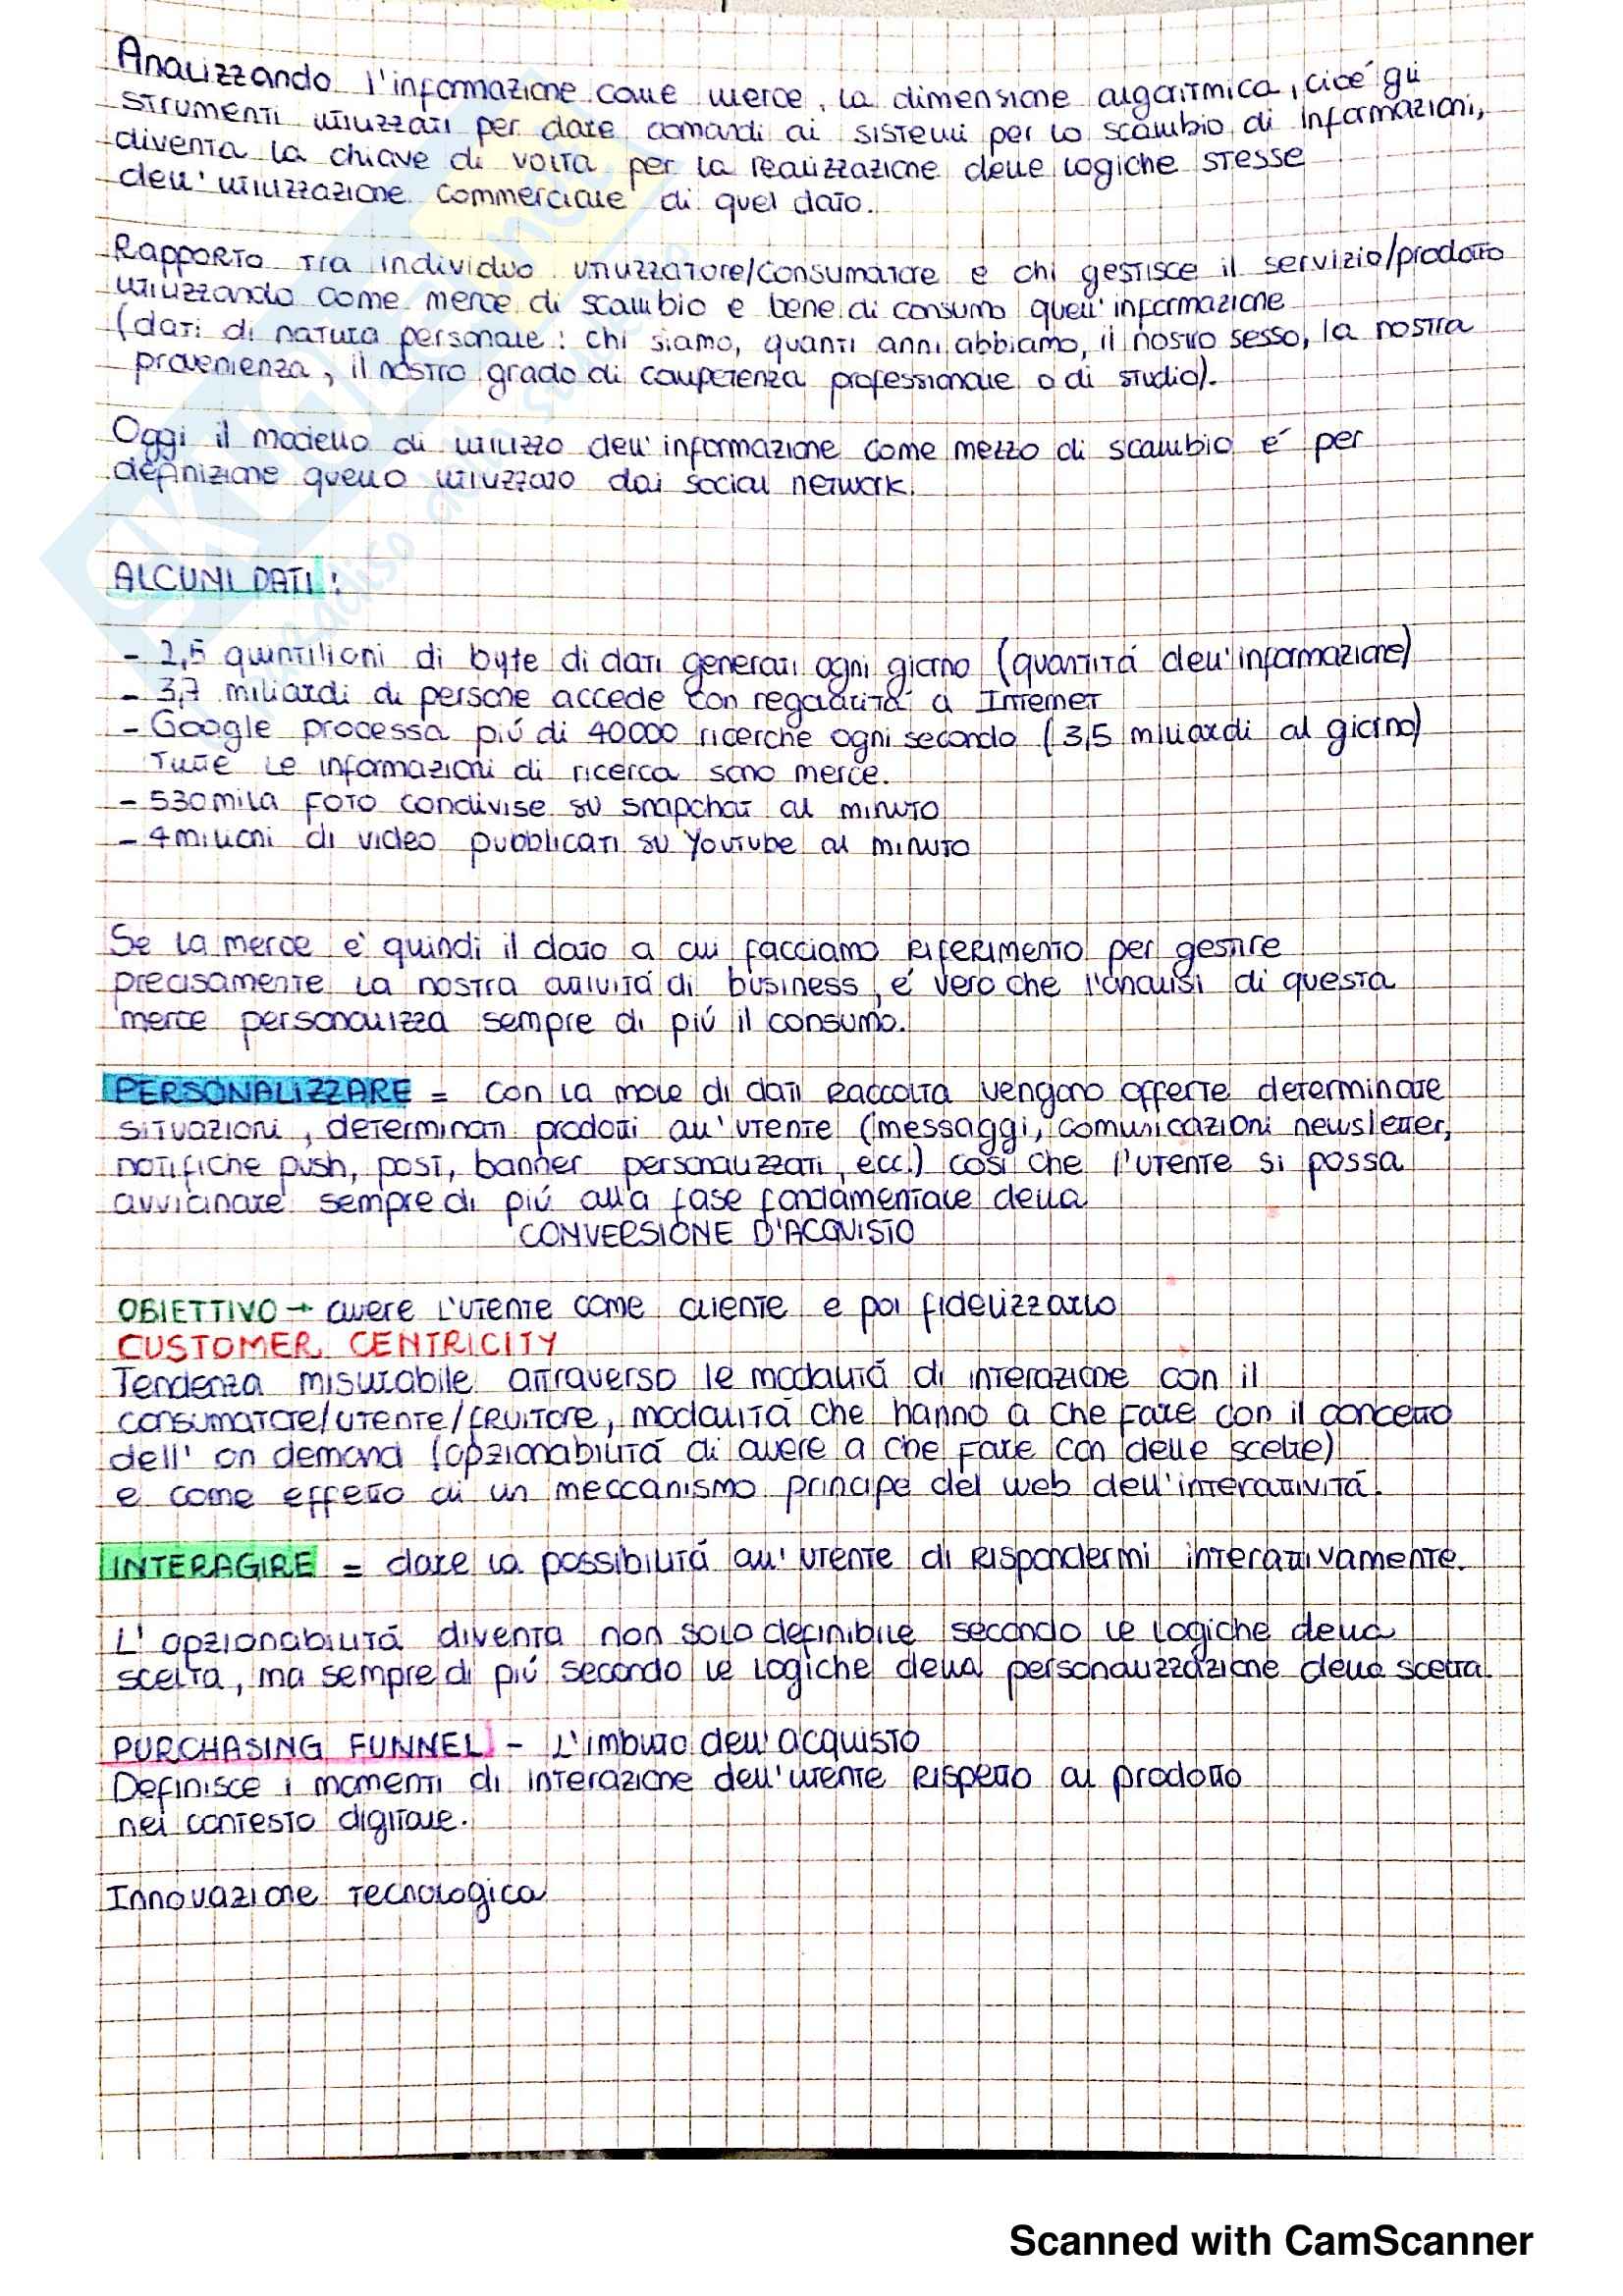 Analizzando l'informazione come merce, la dimensione algoritmica, cioé gli
strumenti utilizzati per dare comandi ai sistemi per lo scambio di informazioni,
diventa la chiave di volta per la realizzazione delle logiche stesse
dell'utilizzazione commerciale di quel dato.
Rapporto tra individuo utilizzatore/consumatore e chi gestisce il servizio/prodotto
utilizzando come merce di scambio e bene di consumo quell'informazione
(dati di natura personale: chi siamo, quanti anni abbiamo, il nostro sesso, la nostra
provenienza, il nostro grado di competenza professionale o di studio).
Oggi il modello di utilizzo dell'informazione come mezzo di scambio é per
definizione quello utilizzato dai social network.
ALCUNI DATI:
- 2,5 quintilioni di byte di dati generati ogni giorno (quantitá dell'informazione)
- 3,7 miliardi di persone accede con regolaritá a Internet
- Google processa piú di 40000 ricerche ogni secondo (3,5 miliardi al giorno)
Tutte le informazioni di ricerca sono merce.
- 530mila foto condivise su snapchat al minuto
- 4milioni di video pubblicati su Youtube al minuto
Se la merce e' quindi il dato a cui facciamo riferimento per gestire
precisamente la nostra attivitá di business, é vero che l'analisi di questa
merce personalizza sempre di piú il consumo.
PERSONALIZZARE = con la mole di dati raccolta vengono offerte determinate
situazioni, determinati prodotti all'utente (messaggi, comunicazioni newsletter,
notifiche push, post, banner personalizzati, ecc.) così che l'utente si possa
avvicinare sempre di piú alla fase fondamentale della
CONVERSIONE D'ACQUISTO
OBIETTIVO → avere l'utente come cliente e poi fidelizzarlo
CUSTOMER CENTRICITY
Tendenza misurabile attraverso le modalitá di interazione con il
consumatore/utente/fruitore, modalitá che hanno a che fare con il concetto
dell' on demand (opzionabilitá di avere a che fare con delle scelte)
e come effetto di un meccanismo principe del web dell'interattivitá.
INTERAGIRE = dare la possibilitá all'utente di rispondermi interattivamente.
L'opzionabilitá diventa non solo definibile secondo le logiche della
scelta, ma sempre di piú secondo le logiche della personalizzazione della scelta.
PURCHASING FUNNEL - L'imbuto dell'acquisto
Definisce i momenti di interazione dell'utente rispetto al prodotto
nel contesto digitale.
Innovazione tecnologica
Scanned with CamScanner